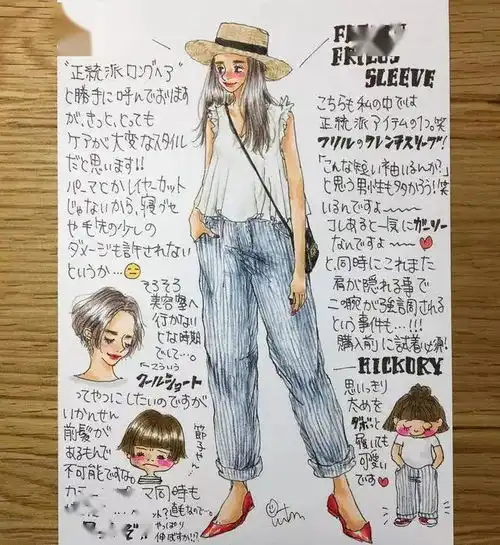 "正統派ロングヘア"
と勝手に呼んでおりますが、きっと、とってもケアが大変なスタイルだと思います!!
パーマとかレイヤーカット
じゃないから、寝グセ
や毛先の少しの
ダメージも許されない
というか…
そろそろ
美容室へ
行かない
とな時期
でして…。
←こういう
クールショート
ってやつにしたいのですが
いかんせん
前髪が
あるもんで
不可能ですな。
マ同時も
やっぱり
伸ばすか!!?
FRILLS
SLEEVE
こちらも私の中では
正統派アイテムの1つ。笑
フリルのフレンチスリーブ!
「こんな短い袖いるんか?」
と思う男性も多かろう!笑
いるんですよ〜〜〜
コレあると一気にガーリー
なんですよ〜♥
と、同時にこれまた
肩が隠れる事で
二の腕が強調される
という事件も…!!!
購入前に試着必須!
HICKORY
思いっきり
太めを
ダボっと
履いても
可愛い
です♥